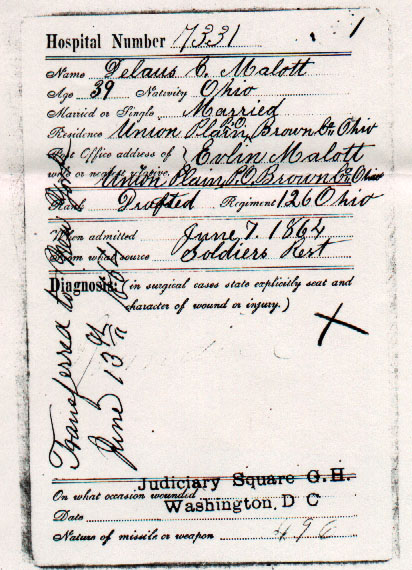 Hospital Number 17331 1
Name Delaus C. Malott
Age 39 Nativity Ohio
Married or Single Married
Residence Union Plain P.O. Brown Co Ohio
Post Office address of wife or nearest relative } Evlin Malott
Union Plain P.O. Brown Co Ohio
Rank Drafted Regiment 126 Ohio
When admitted June 7. 1864
From what source Soldiers Rest
Diagnosis: (in surgical cases state explicitly seat and
character of wound or injury.)
X
Transferred to New York
June 13th
Judiciary Square G. H.
On what occasion wounded
Washington, D C
Date
Nature of missile or weapon 496